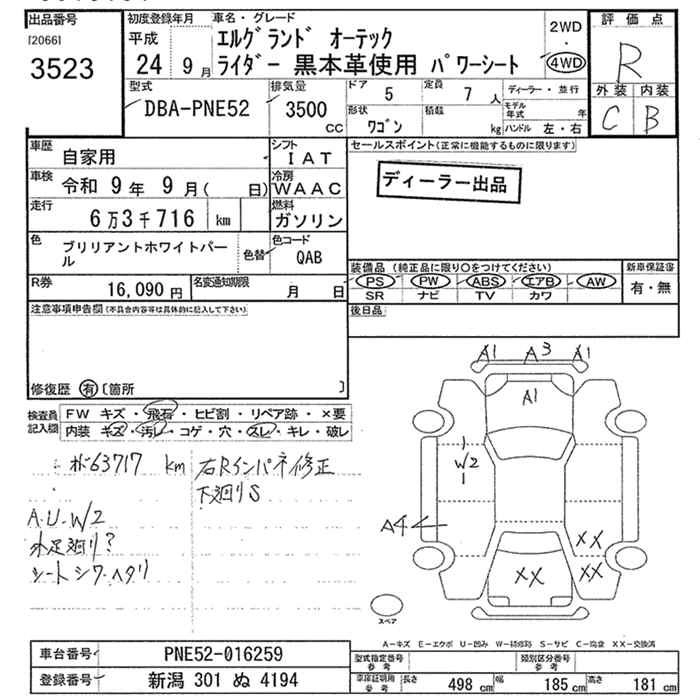 出品番号
[2066]
3523
初度登録年月
平成
24 9月
車名・グレード
エルグランド オーテック
ライダー 黒本革使用 パワーシート
2WD
・
4WD
評価点
R
外装 内装
C B
型式
DBA-PNE52
排気量
3500
CC
ドア
5
定員
7 人
形状
ワゴン
積載
kg
ディーラー・並行
モデル年式 年
ハンドル 左・右
車歴
自家用
シフト
IAT
車検
令和 9年 9月( 日)
冷房
WAAC
走行
6万3千716 km
燃料
ガソリン
色
ブリリアントホワイトパール
色替
色コード
QAB
R券
16,090円
名変通知期限
月 日
注意事項申告欄(不具合内容等は具体的に記入して下さい)
修復歴 有 [箇所 ]
セールスポイント(正常に機能するものに限ります)
ディーラー出品
装備品 (純正品に限り○をつけてください)
PS PW ABS エアB AW
SR ナビ TV カワ
新車保証書
有・無
後日品
検査員記入欄
FW キズ・飛石・ヒビ割・リペア跡・×要
内装 キズ・汚レ・コゲ・穴・スレ・キレ・破レ
63717 km
A.U.W2
シートシワ・ヘタリ
右Rインパネ修正
下廻りS
A1 A3 A1
A1
W2
A4
××
×× ××
スペア
A−キズ E−エクボ U−凹み W−補修跡 S−サビ C−腐食 XX−交換済
車台番号
PNE52-016259
登録番号
新潟 301 ぬ 4194
型式指定番号
参考
類別区分番号
参考
車庫証明用
参考
長さ 498 cm
幅 185 cm
高さ 181 cm